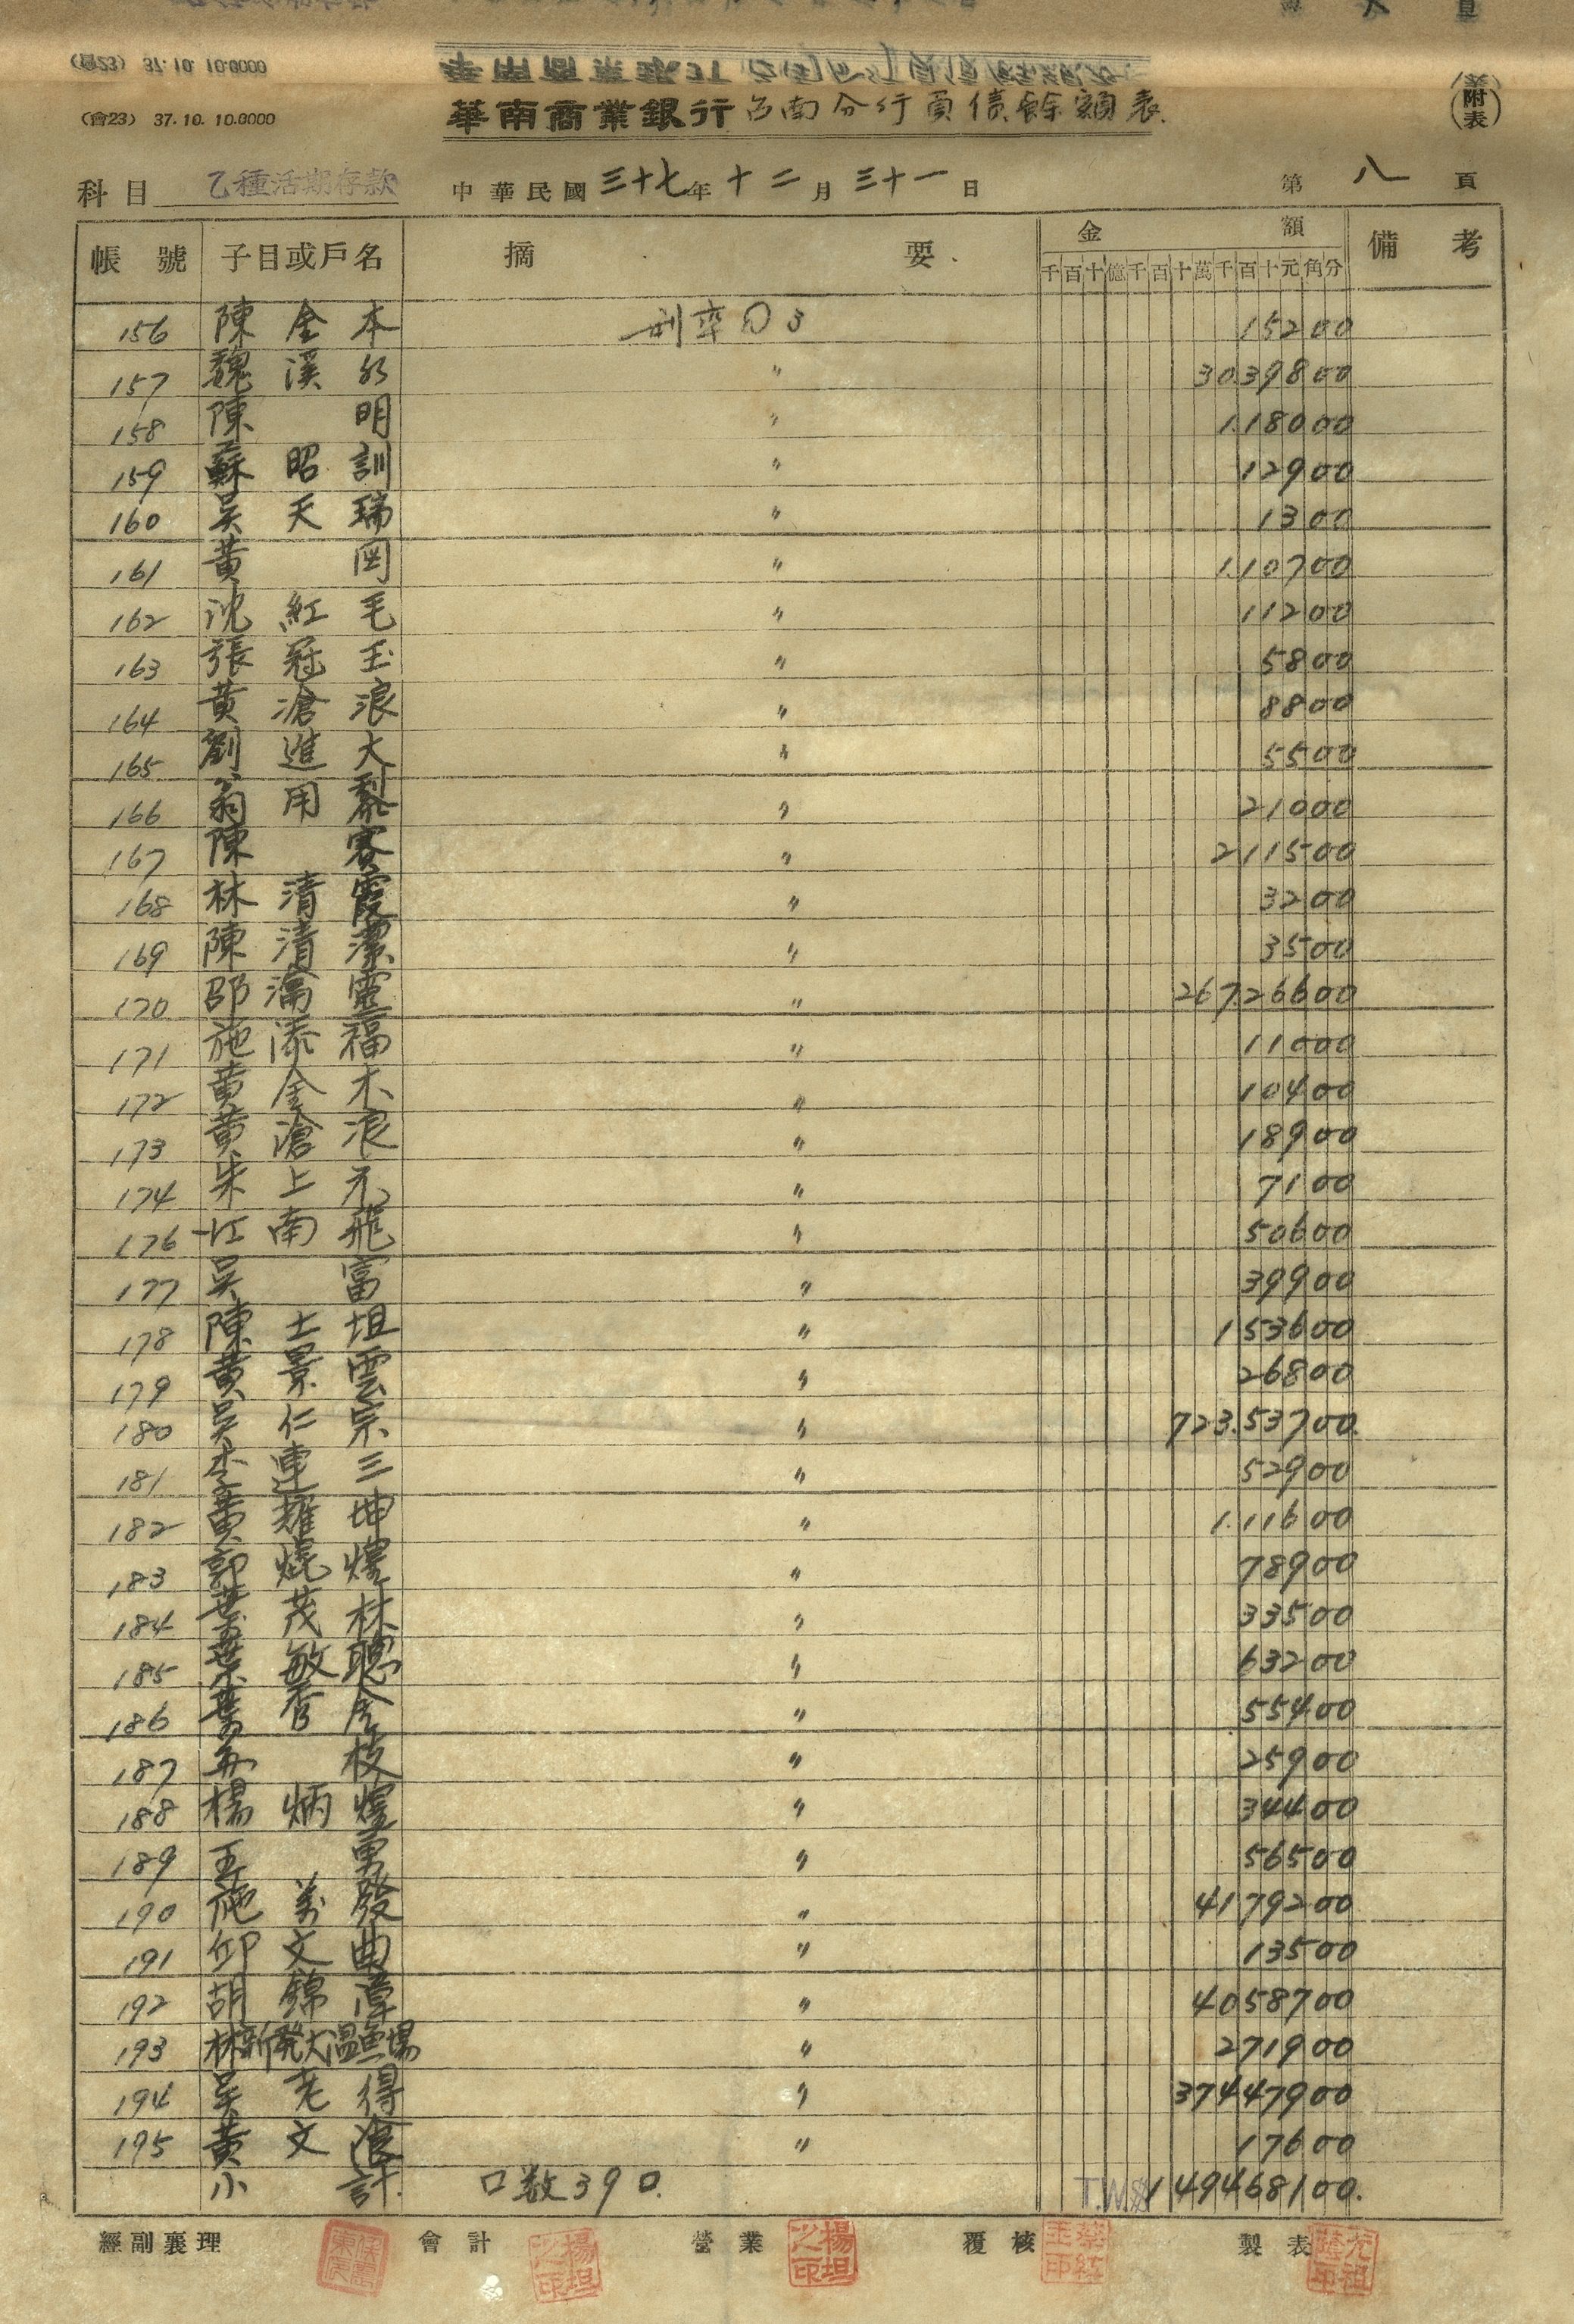 (會23) 37.10. 10.0000
華南商業銀行台南分行負債餘額表
(附表)
科目 乙種活期存款 中華民國三十七年十二月三十一日 第八頁
帳號 子目或戶名 摘要 金額 備考
千百十億千百十萬千百十元角分
156 陳金本 利率 3 152 00
157 魏溪 〃 30398 00
158 陳明 〃 1.180 00
159 蘇昭訓 〃 129 00
160 吳天瑞 〃 13 00
161 黃岡 〃 1.107 00
162 沈紅毛 〃 112 00
163 張冠玉 〃 58 00
164 黃滄浪 〃 88 00
165 劉進大 〃 55 00
166 翁用黎 〃 210 00
167 陳客 〃 2115 00
168 林清霞 〃 32 00
169 陳清潔 〃 35 00
170 邵瀛靈 〃 267.266 00
171 施添福 〃 110 00
172 黃金木 〃 104 00
173 黃滄浪 〃 189 00
174 朱上元 〃 71 00
176 江南飛 〃 506 00
177 吳富 〃 399 00
178 陳士坦 〃 1536 00
179 黃景雲 〃 268 00
180 吳仁宗 〃 723.537 00
181 李連三 〃 529 00
182 黃耀坤 〃 1.116 00
183 郭焜煌 〃 789 00
184 葉茂林 〃 335 00
185 葉敏聰 〃 632 00
186 葉香金 〃 554 00
187 枝 〃 259 00
188 楊炳煌 〃 344 00
189 王勇 〃 565 00
190 施萬發 〃 41792 00
191 邱文曲 〃 135 00
192 胡錦漳 〃 40587 00
193 林新發大溫魚場 〃 2719 00
194 吳老得 〃 374479 00
195 黃文浪 〃 176 00
小計 口数390 T.W.$1494681 00
經副襄理 會計 營業 覆核 製表
楊坦之印 楊坦之印